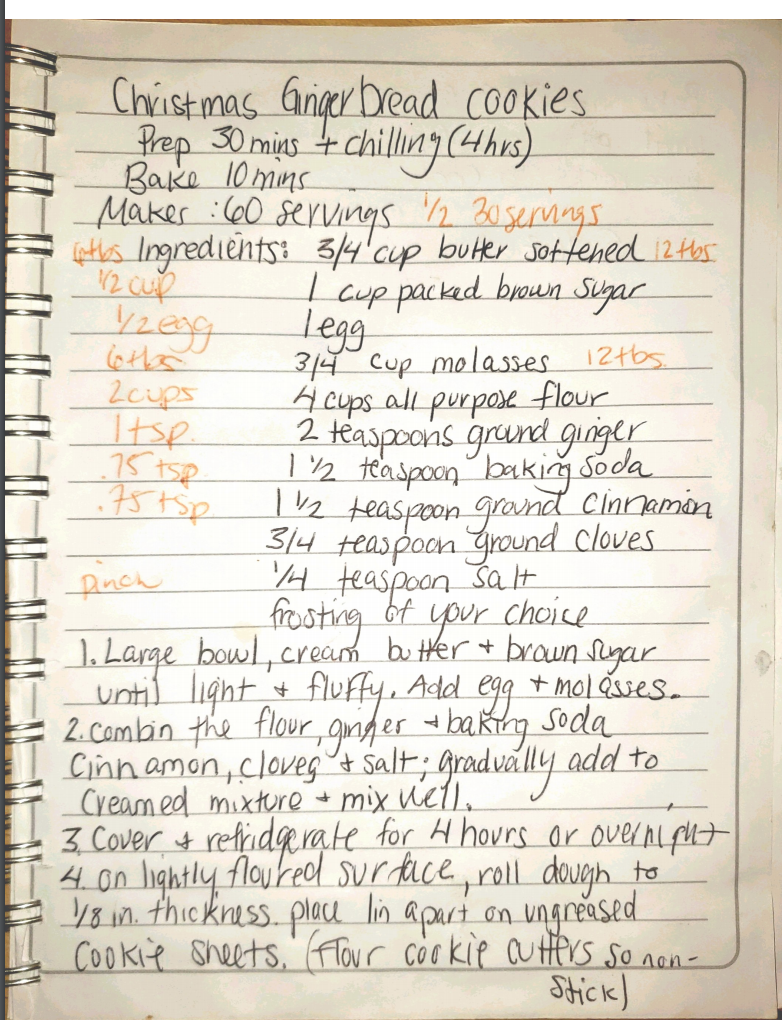 Christmas Gingerbread cookies
Prep 30 mins + chilling (4hrs)
Bake 10 mins
Makes : 60 servings 1/2 30 servings
6tbs Ingredients: 3/4 cup butter softened 12 tbs
1/2 cup 1 cup packed brown sugar
1/2 egg 1 egg
6 tbs 3/4 cup molasses 12 tbs
2 cups 4 cups all purpose flour
1 tsp. 2 teaspoons ground ginger
.75 tsp 1 1/2 teaspoon baking soda
.75 tsp 1 1/2 teaspoon ground cinnamon
3/4 teaspoon ground cloves
pinch 1/4 teaspoon salt
frosting of your choice
1. Large bowl, cream butter + brown sugar
until light + fluffy. Add egg + molasses.
2. combin the flour, ginger + baking soda
Cinnamon, cloves + salt; gradually add to
Creamed mixture + mix well.
3. Cover + refridgerate for 4 hours or overnight
4. on lightly floured surface, roll dough to
1/8 in. thickness. place 1in apart on ungreased
Cookie sheets. (flour cookie cutters so non-
stick)